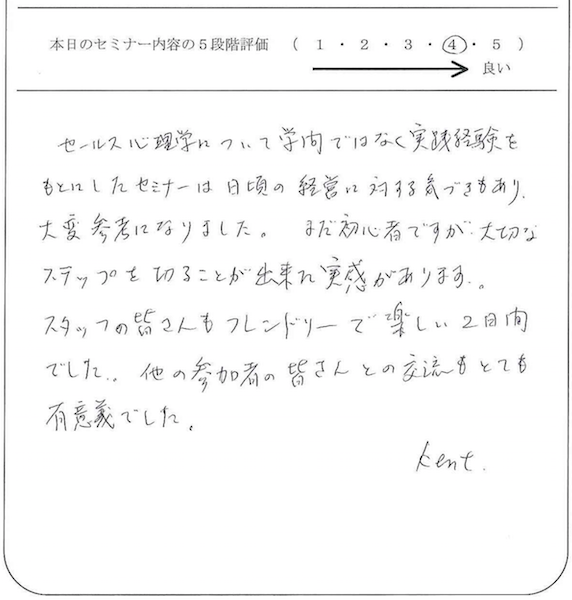 本日のセミナー内容の5段階評価 ( 1 ・ 2 ・ 3 ・ 4 ・ 5 )
良い
セールス心理学について学問ではなく実践経験を
もとにしたセミナーは日頃の経営に対する気づきもあり、
大変参考になりました。 まだ初心者ですが大切な
ステップを切ることが出来た実感があります。
スタッフの皆さんもフレンドリーで楽しい2日間
でした。他の参加者の皆さんとの交流もとても
有意義でした。
Kent.